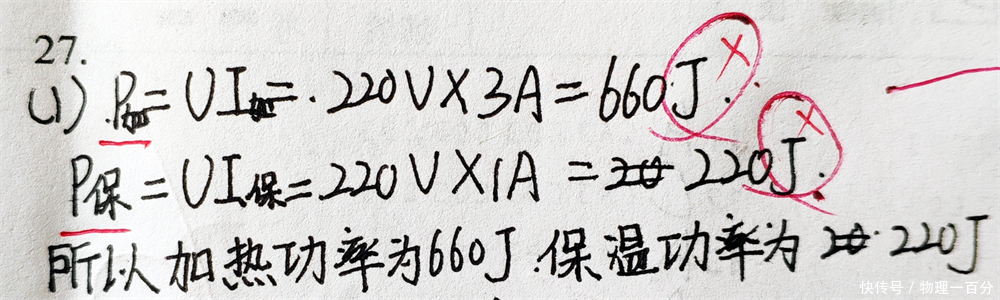 27.
(1) P加=UI加=.220V×3A=660J.
P保=UI保=220V×1A=220J.
所以加热功率为660J.保温功率为220J
快传号/物理一百分